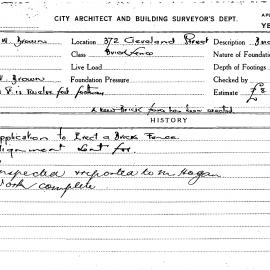 CITY ARCHITECT AND BUILDING SURVEYOR'S DEPT.
W. Brown Location 372 Cleveland Street Description
Class Brick Fence Nature of Foundation
Live Load Depth of Footings
Brown Foundation Pressure Checked by
is twelve feet Estimate £8
A new Brick fence has been erected.
HISTORY
Application to Erect a Brick Fence.
Alignment sent for.
Inspected reported to Mr Hogan
Work complete